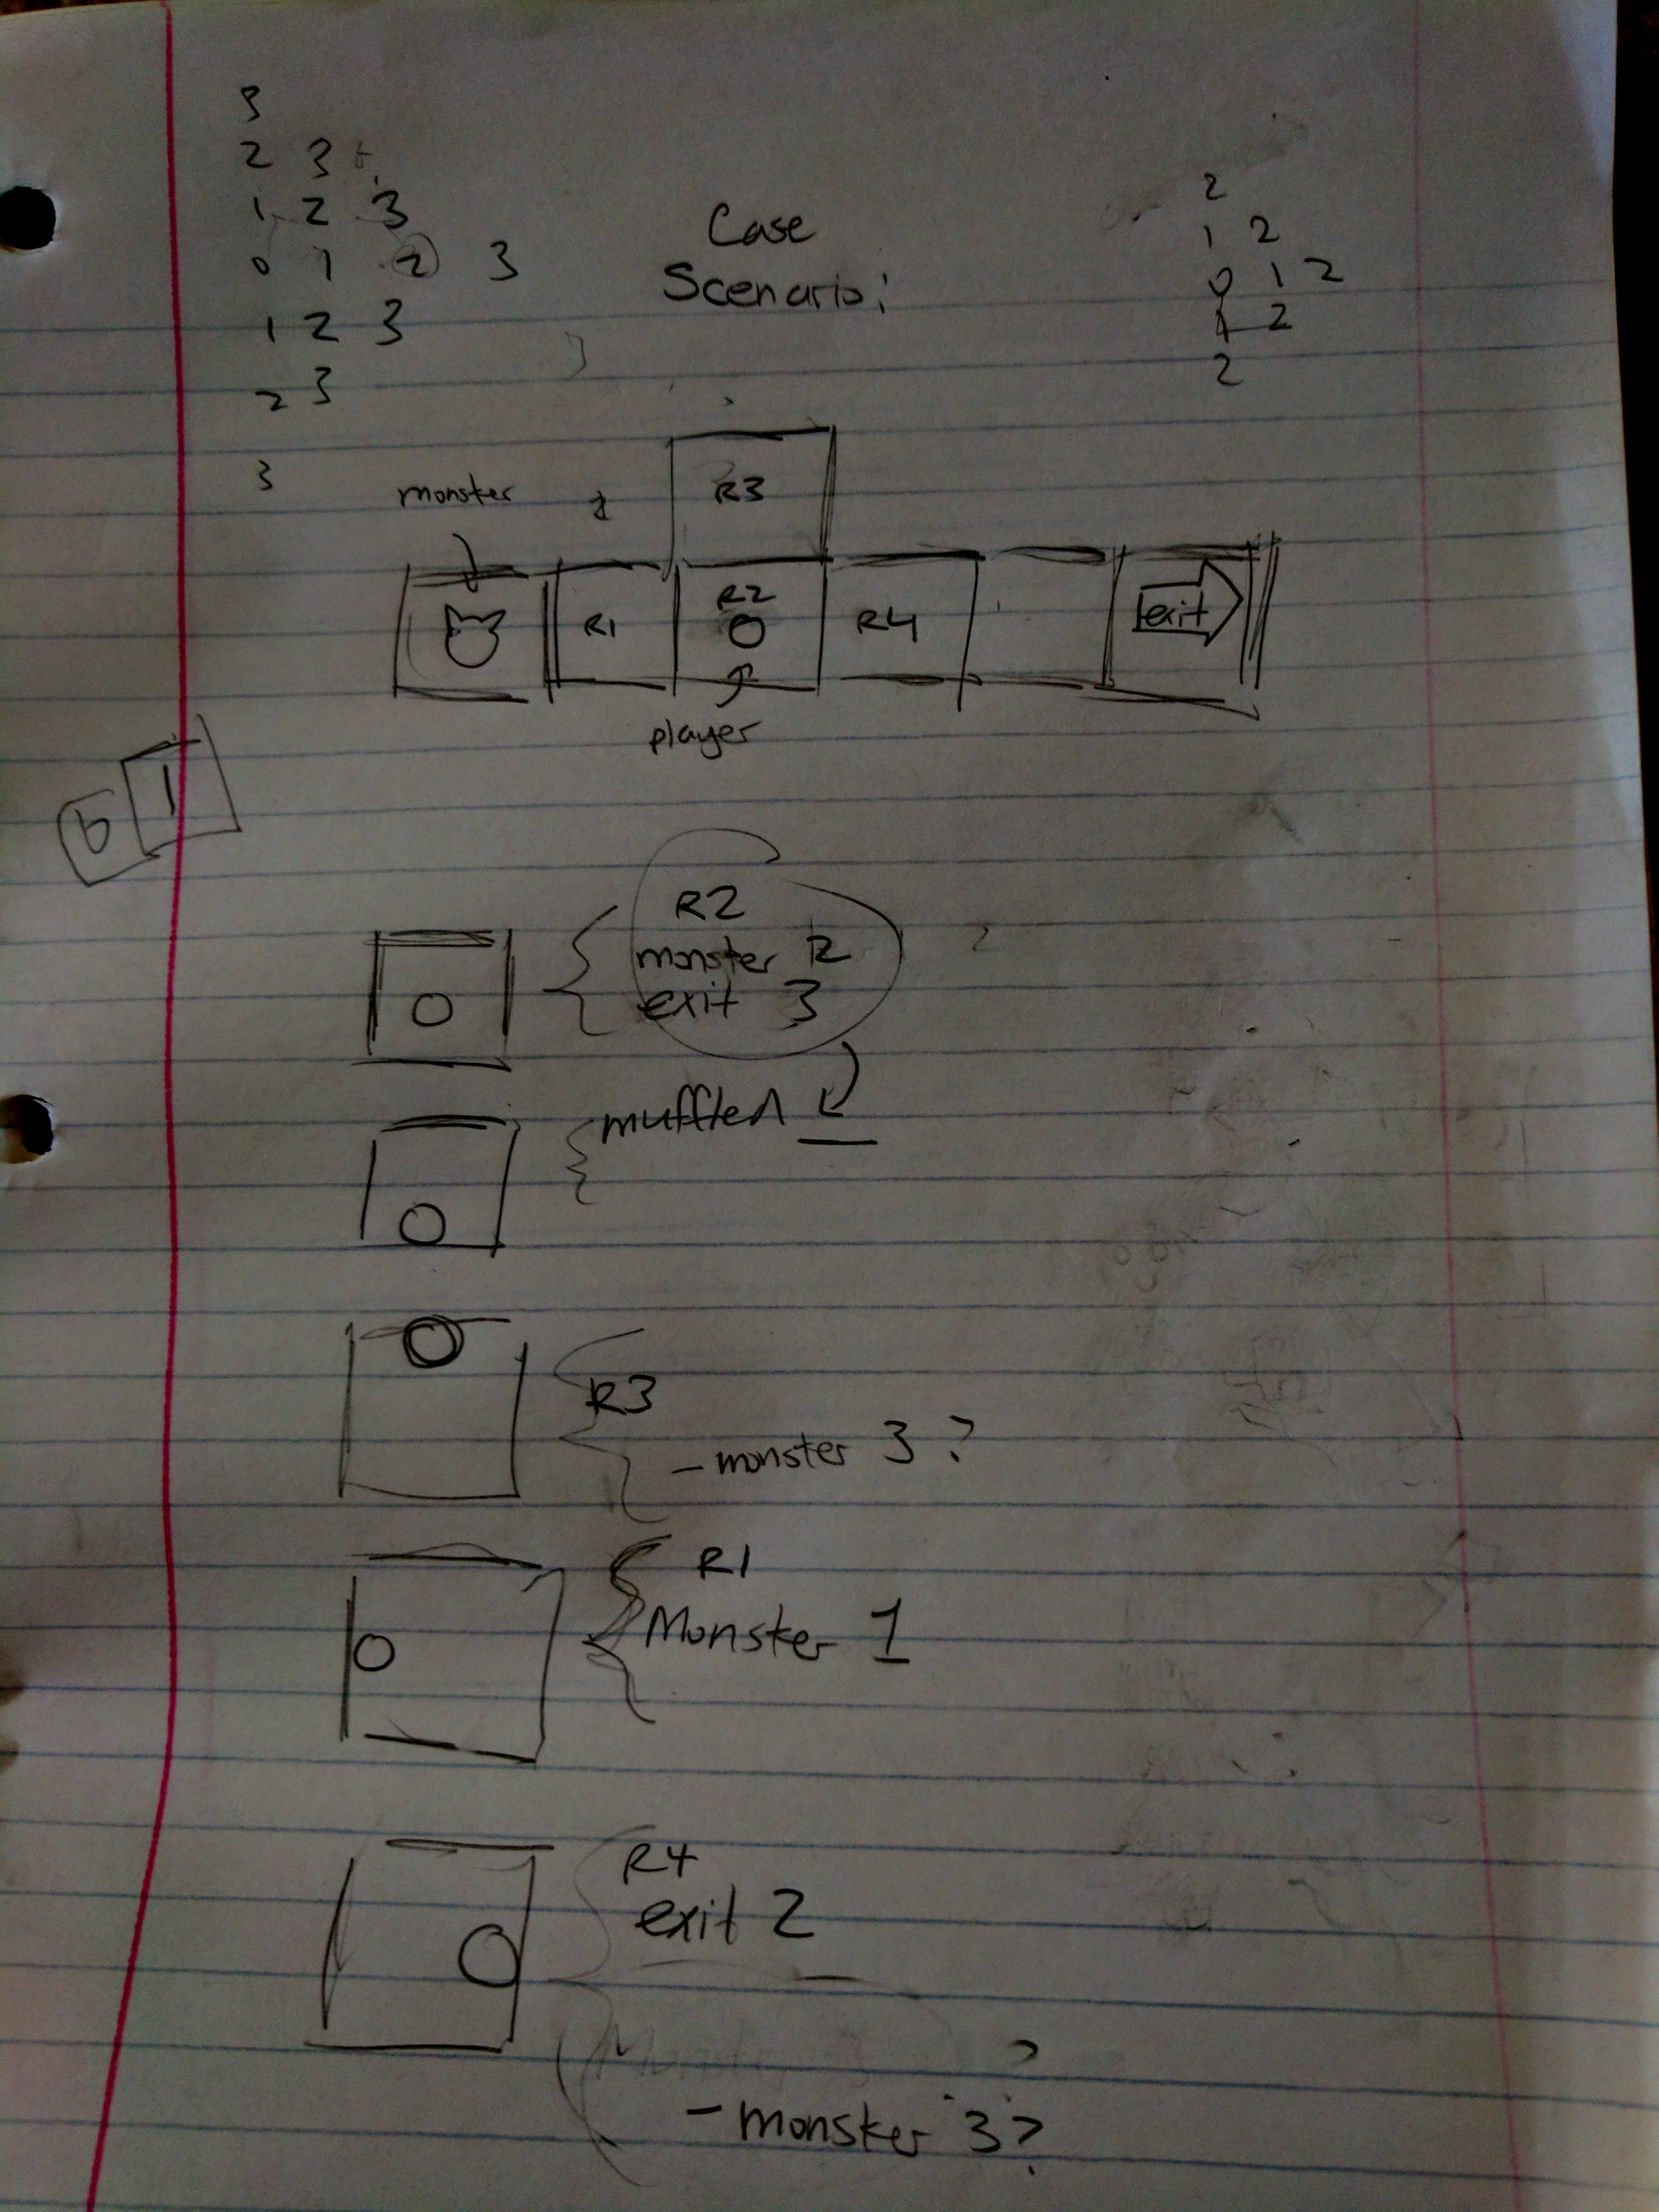 3
2 3
1 2 3
0 1 2 3
1 2 3
2 3
3
Case
Scenario:
2
1 2
0 1 2
1 2
2
monster
R3
R1
R2
R4
exit
player
1
R2
monster 2
exit 3
muffled
R3
- monster 3?
R1
Monster 1
R4
exit 2
- monster 3?